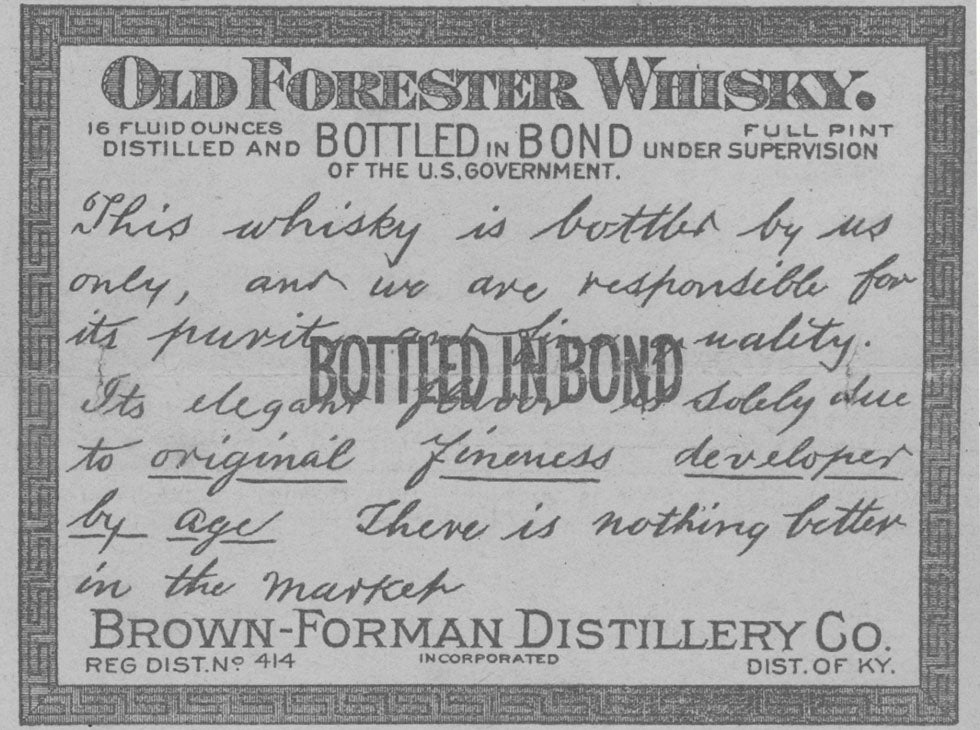 OLD FORESTER WHISKY.
16 FLUID OUNCES FULL PINT
DISTILLED AND BOTTLED IN BOND UNDER SUPERVISION
OF THE U.S. GOVERNMENT.
This whisky is bottled by us
only, and we are responsible for
its purity and fine quality.
BOTTLED IN BOND
Its elegant flavor is solely due
to original fineness developed
by age There is nothing better
in the market
BROWN-FORMAN DISTILLERY CO.
REG DIST. No 414 INCORPORATED DIST. OF KY.